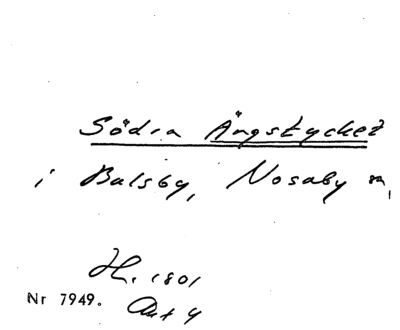 Södra Ängstycket
i Balsby, Nosaby sn,
H. 1801
Nr 7949.
Akt 4